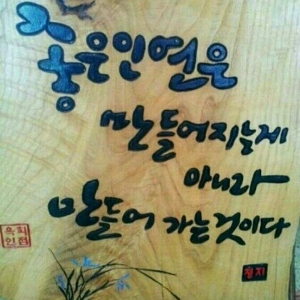 좋은인연은
만들어지는게
아니라
만들어 가는것이다